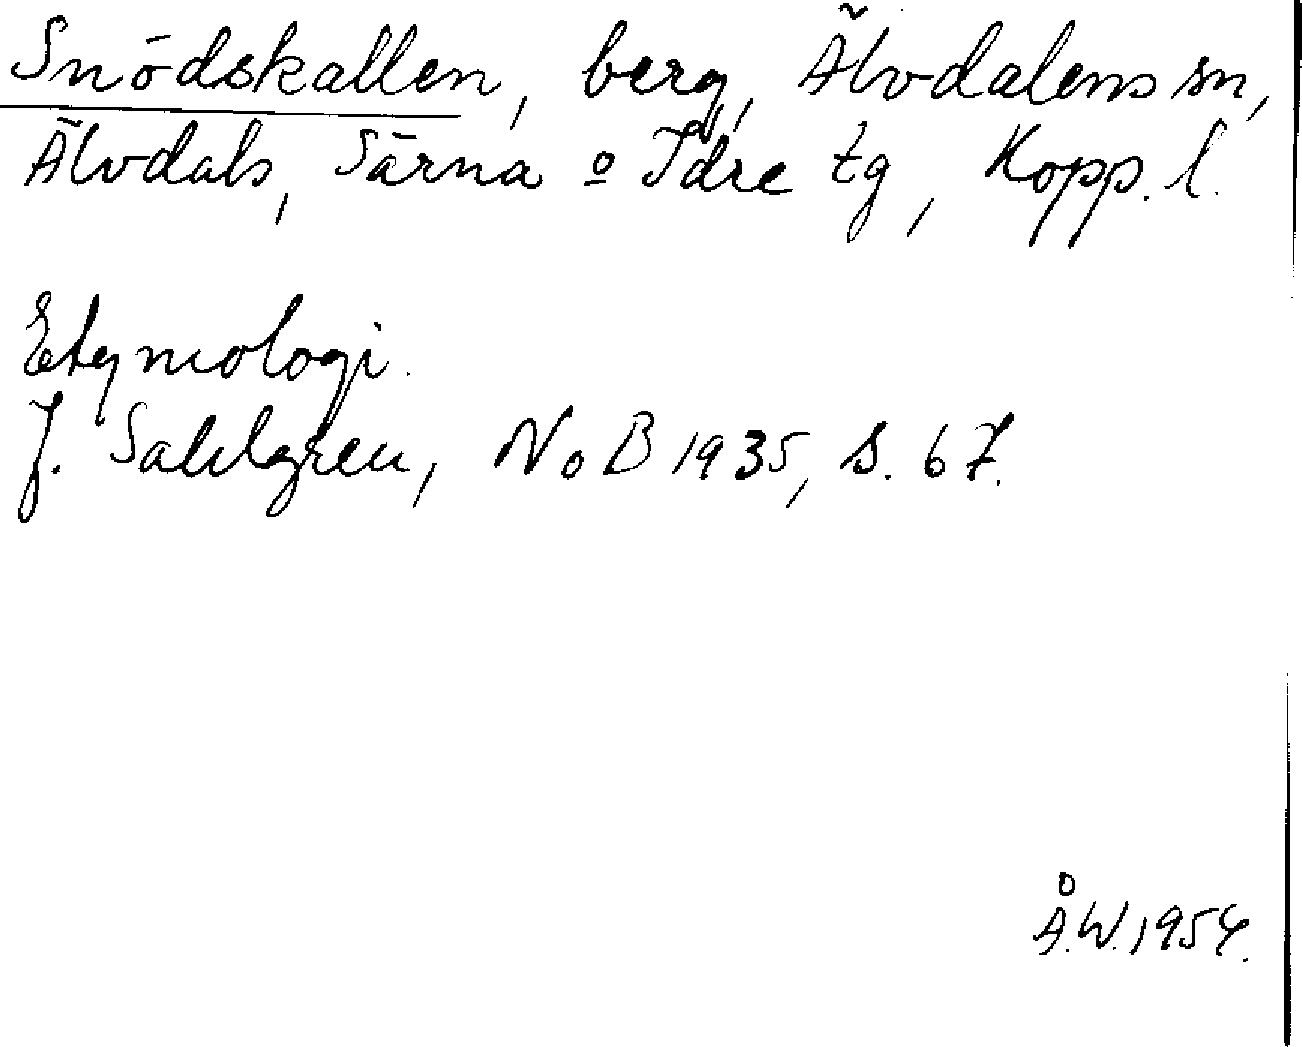 Snödskallen, berg, Älvdalens sn,
Älvdals, Särna o Idre tg, Kopp. l.
Etymologi.
J. Sahlgren, NoB 1935, s. 67.
Å.W. 1954.